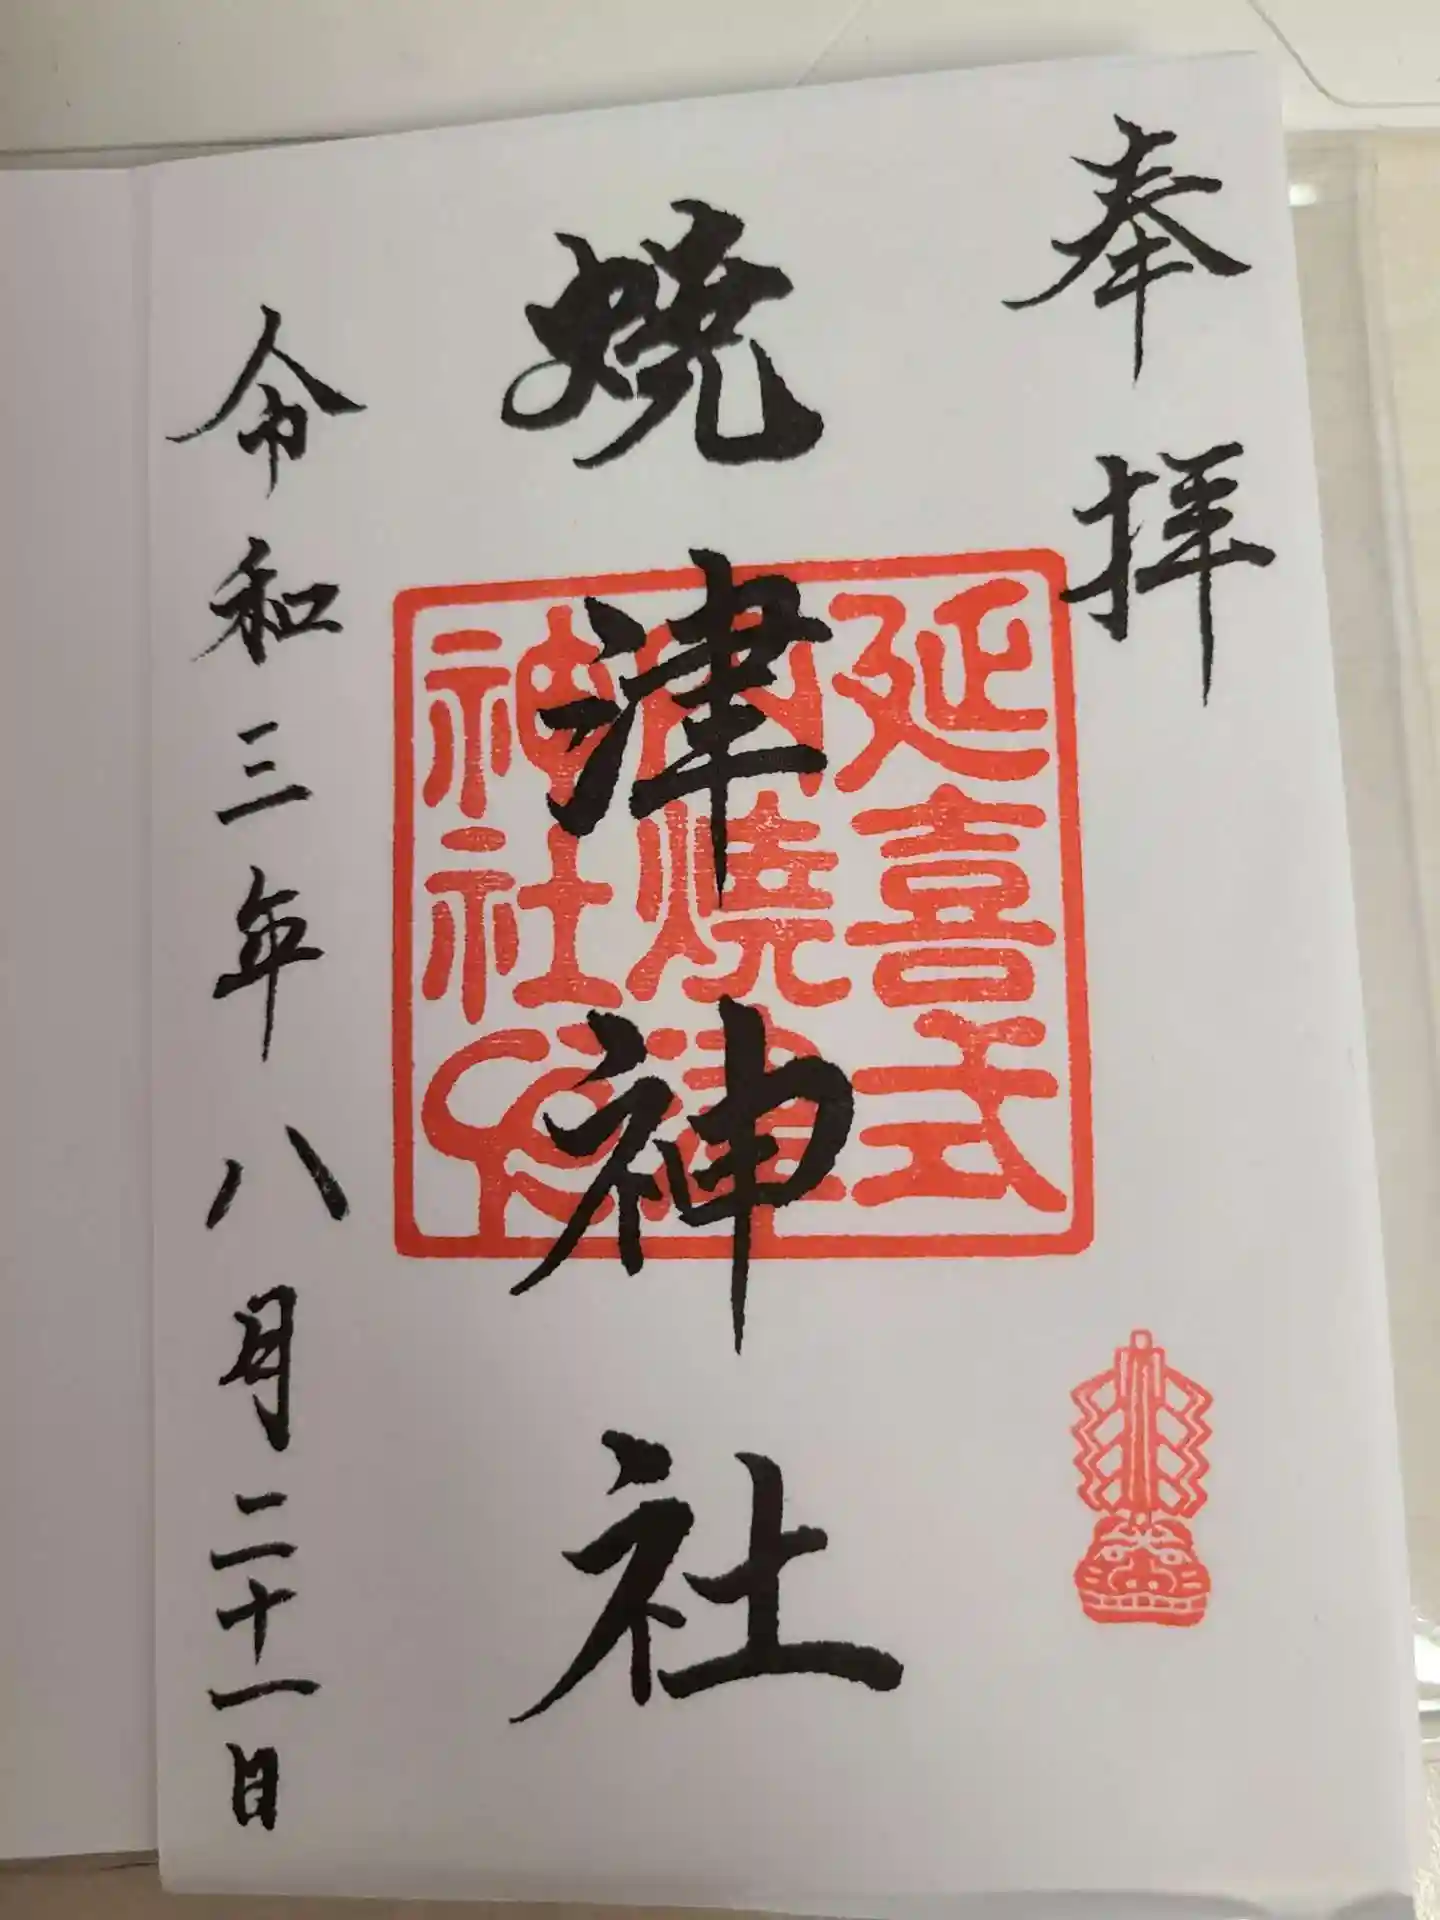 奉拝
焼津神社
延喜式
内焼津
神社印
令和三年八月二十一日